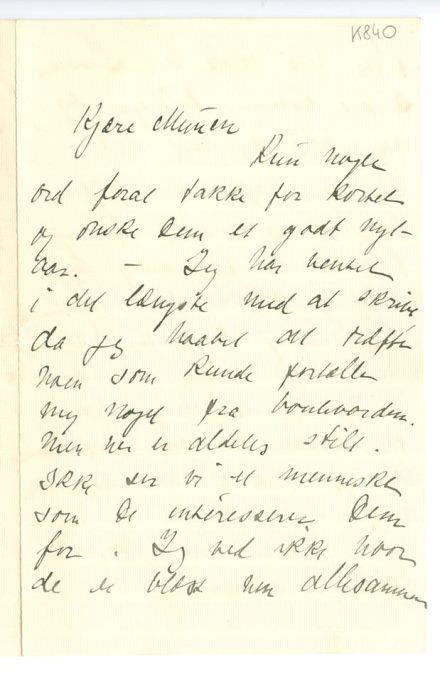 K840
Kjære Munch
Kun nogle
ord foral takke for kortet
og ønske Dem et godt nyt-
aar. – Jeg har ventet
i det længste med at skrive
da jeg haabet at træffe
noen som kunde fortælle
mig noget fra boulevarden.
Men her er aldeles stille.
Ikke ser vi et menneske
som De interesserer Dem
for. Jeg ved ikke hvor
de er blæst hen allesammen